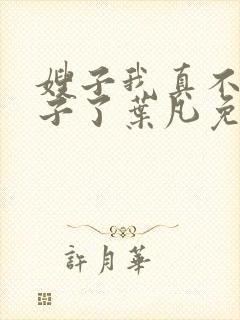 嫂子我真不
子了葉凡免
許月華